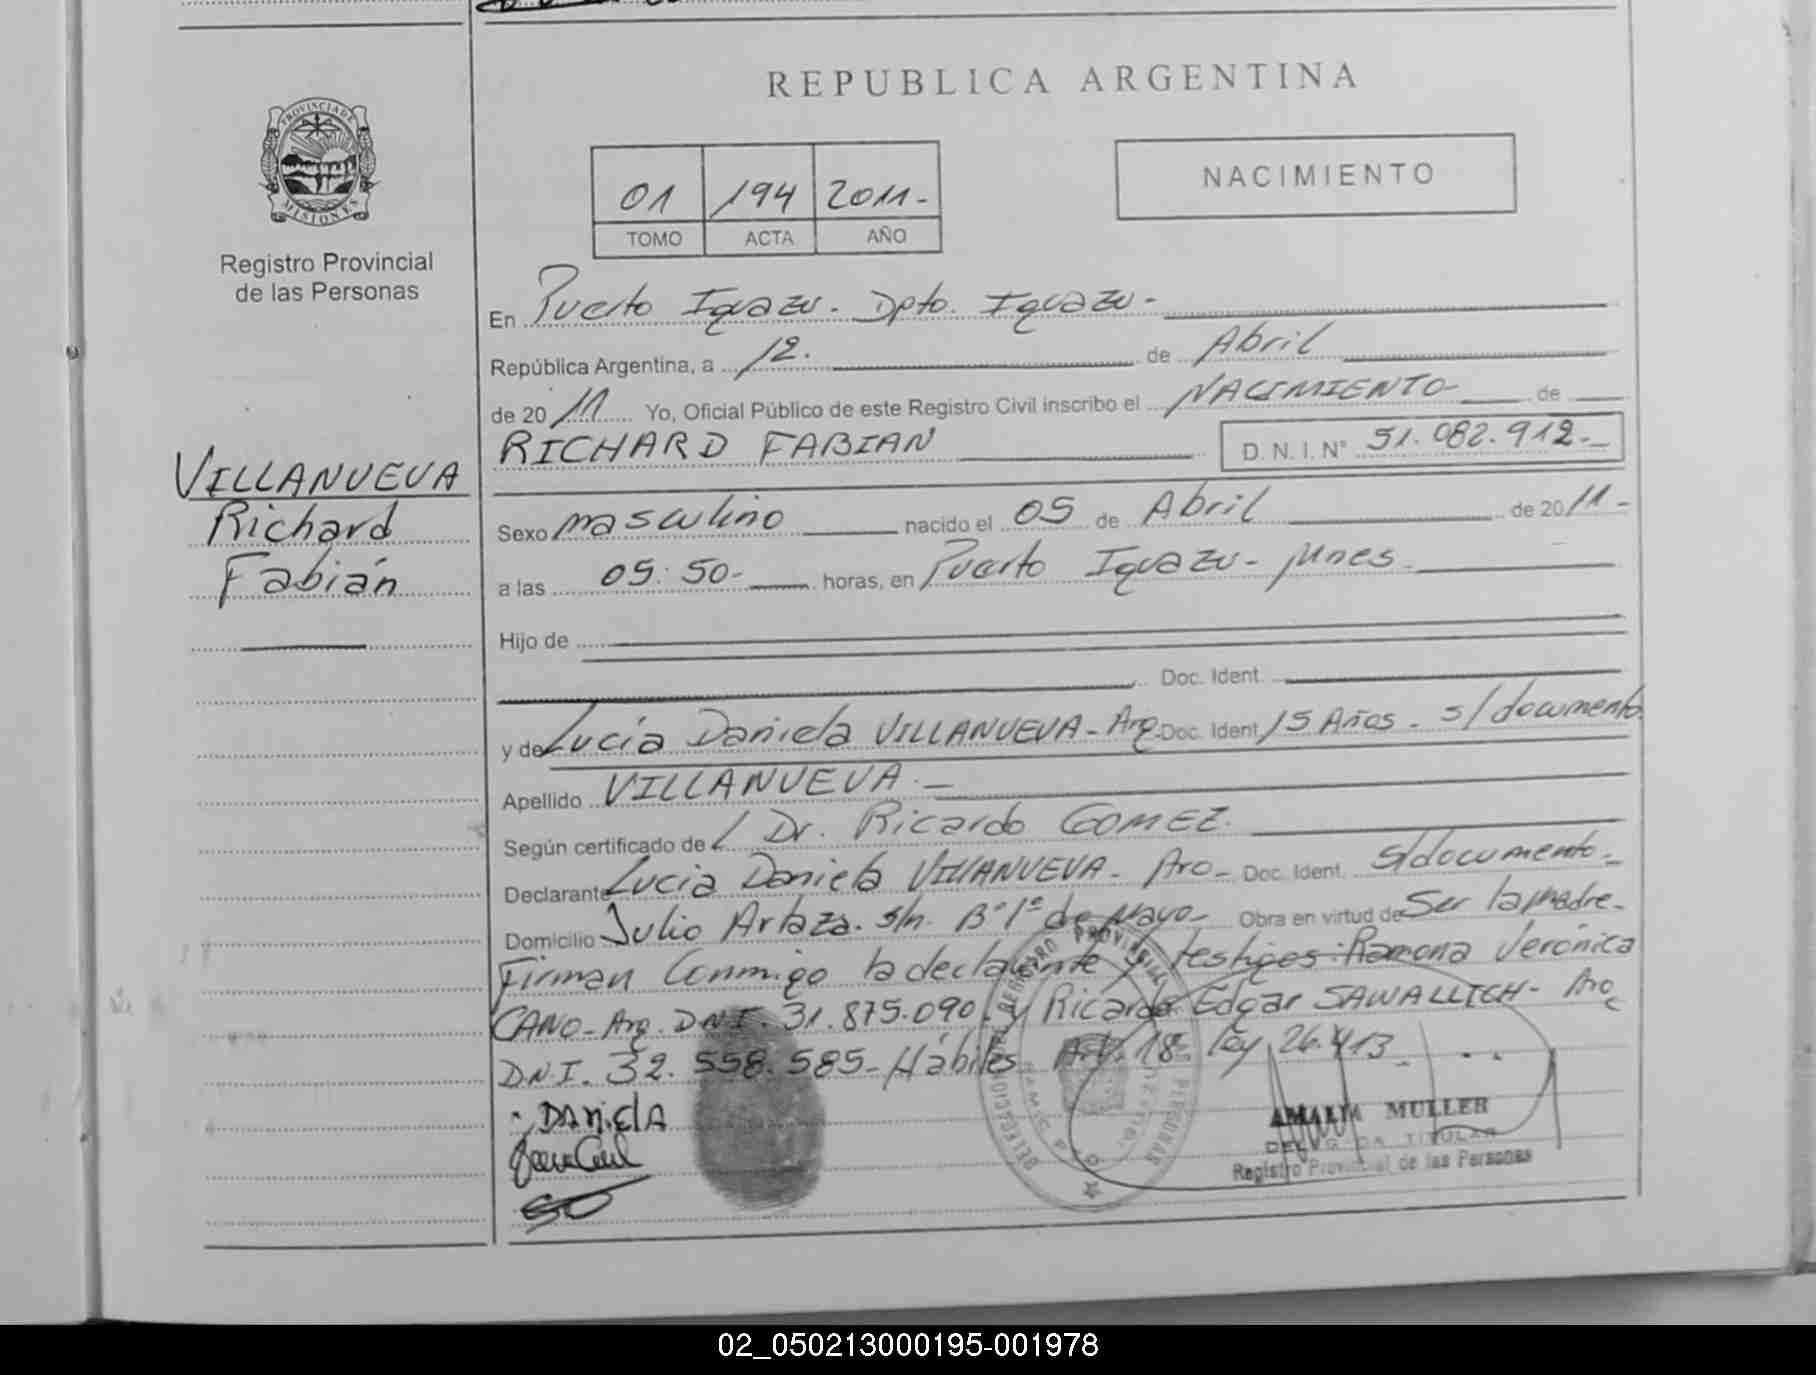 REPUBLICA ARGENTINA
PROVINCIA DE
MISIONES
Registro Provincial
de las Personas
01 194 2011-
TOMO ACTA AÑO
NACIMIENTO
En Puerto Iguazu - Dpto. Iguazu -
República Argentina, a 12. de Abril
de 2011 Yo, Oficial Público de este Registro Civil inscribo el NACIMIENTO de
RICHARD FABIAN D.N.I.N° 51.082.912.-
VILLANUEVA
Richard
Fabián
Sexo masculino nacido el 05 de Abril de 2011-
a las 05:50- horas, en Puerto Iguazu-
Hijo de
Doc. Ident.
y de Lucia Daniela VILLANUEVA - Arg. Doc. Ident 15 Años. s/documento.
Apellido VILLANUEVA. -
Según certificado de Dr. Ricardo GOMEZ.
Declarante Lucia Daniela VILLANUEVA - Doc. Ident. s/documento-
Domicilio Julio Artaza. s/n. B° 1° de Mayo- Obra en virtud de Ser la madre-
Firman Conmigo la declarante y testigos: Ramona Verónica
CANO- Arg. DNI. 31.875.090. y Ricardo Edgar SAWALLICH-
DNI. 32.558.585- Hábiles Art 18° ley 26.413-
DANiElA
AMALIA MULLER
DELEGADA TITULAR
Registro Provincial de las Personas
02_050213000195-001978